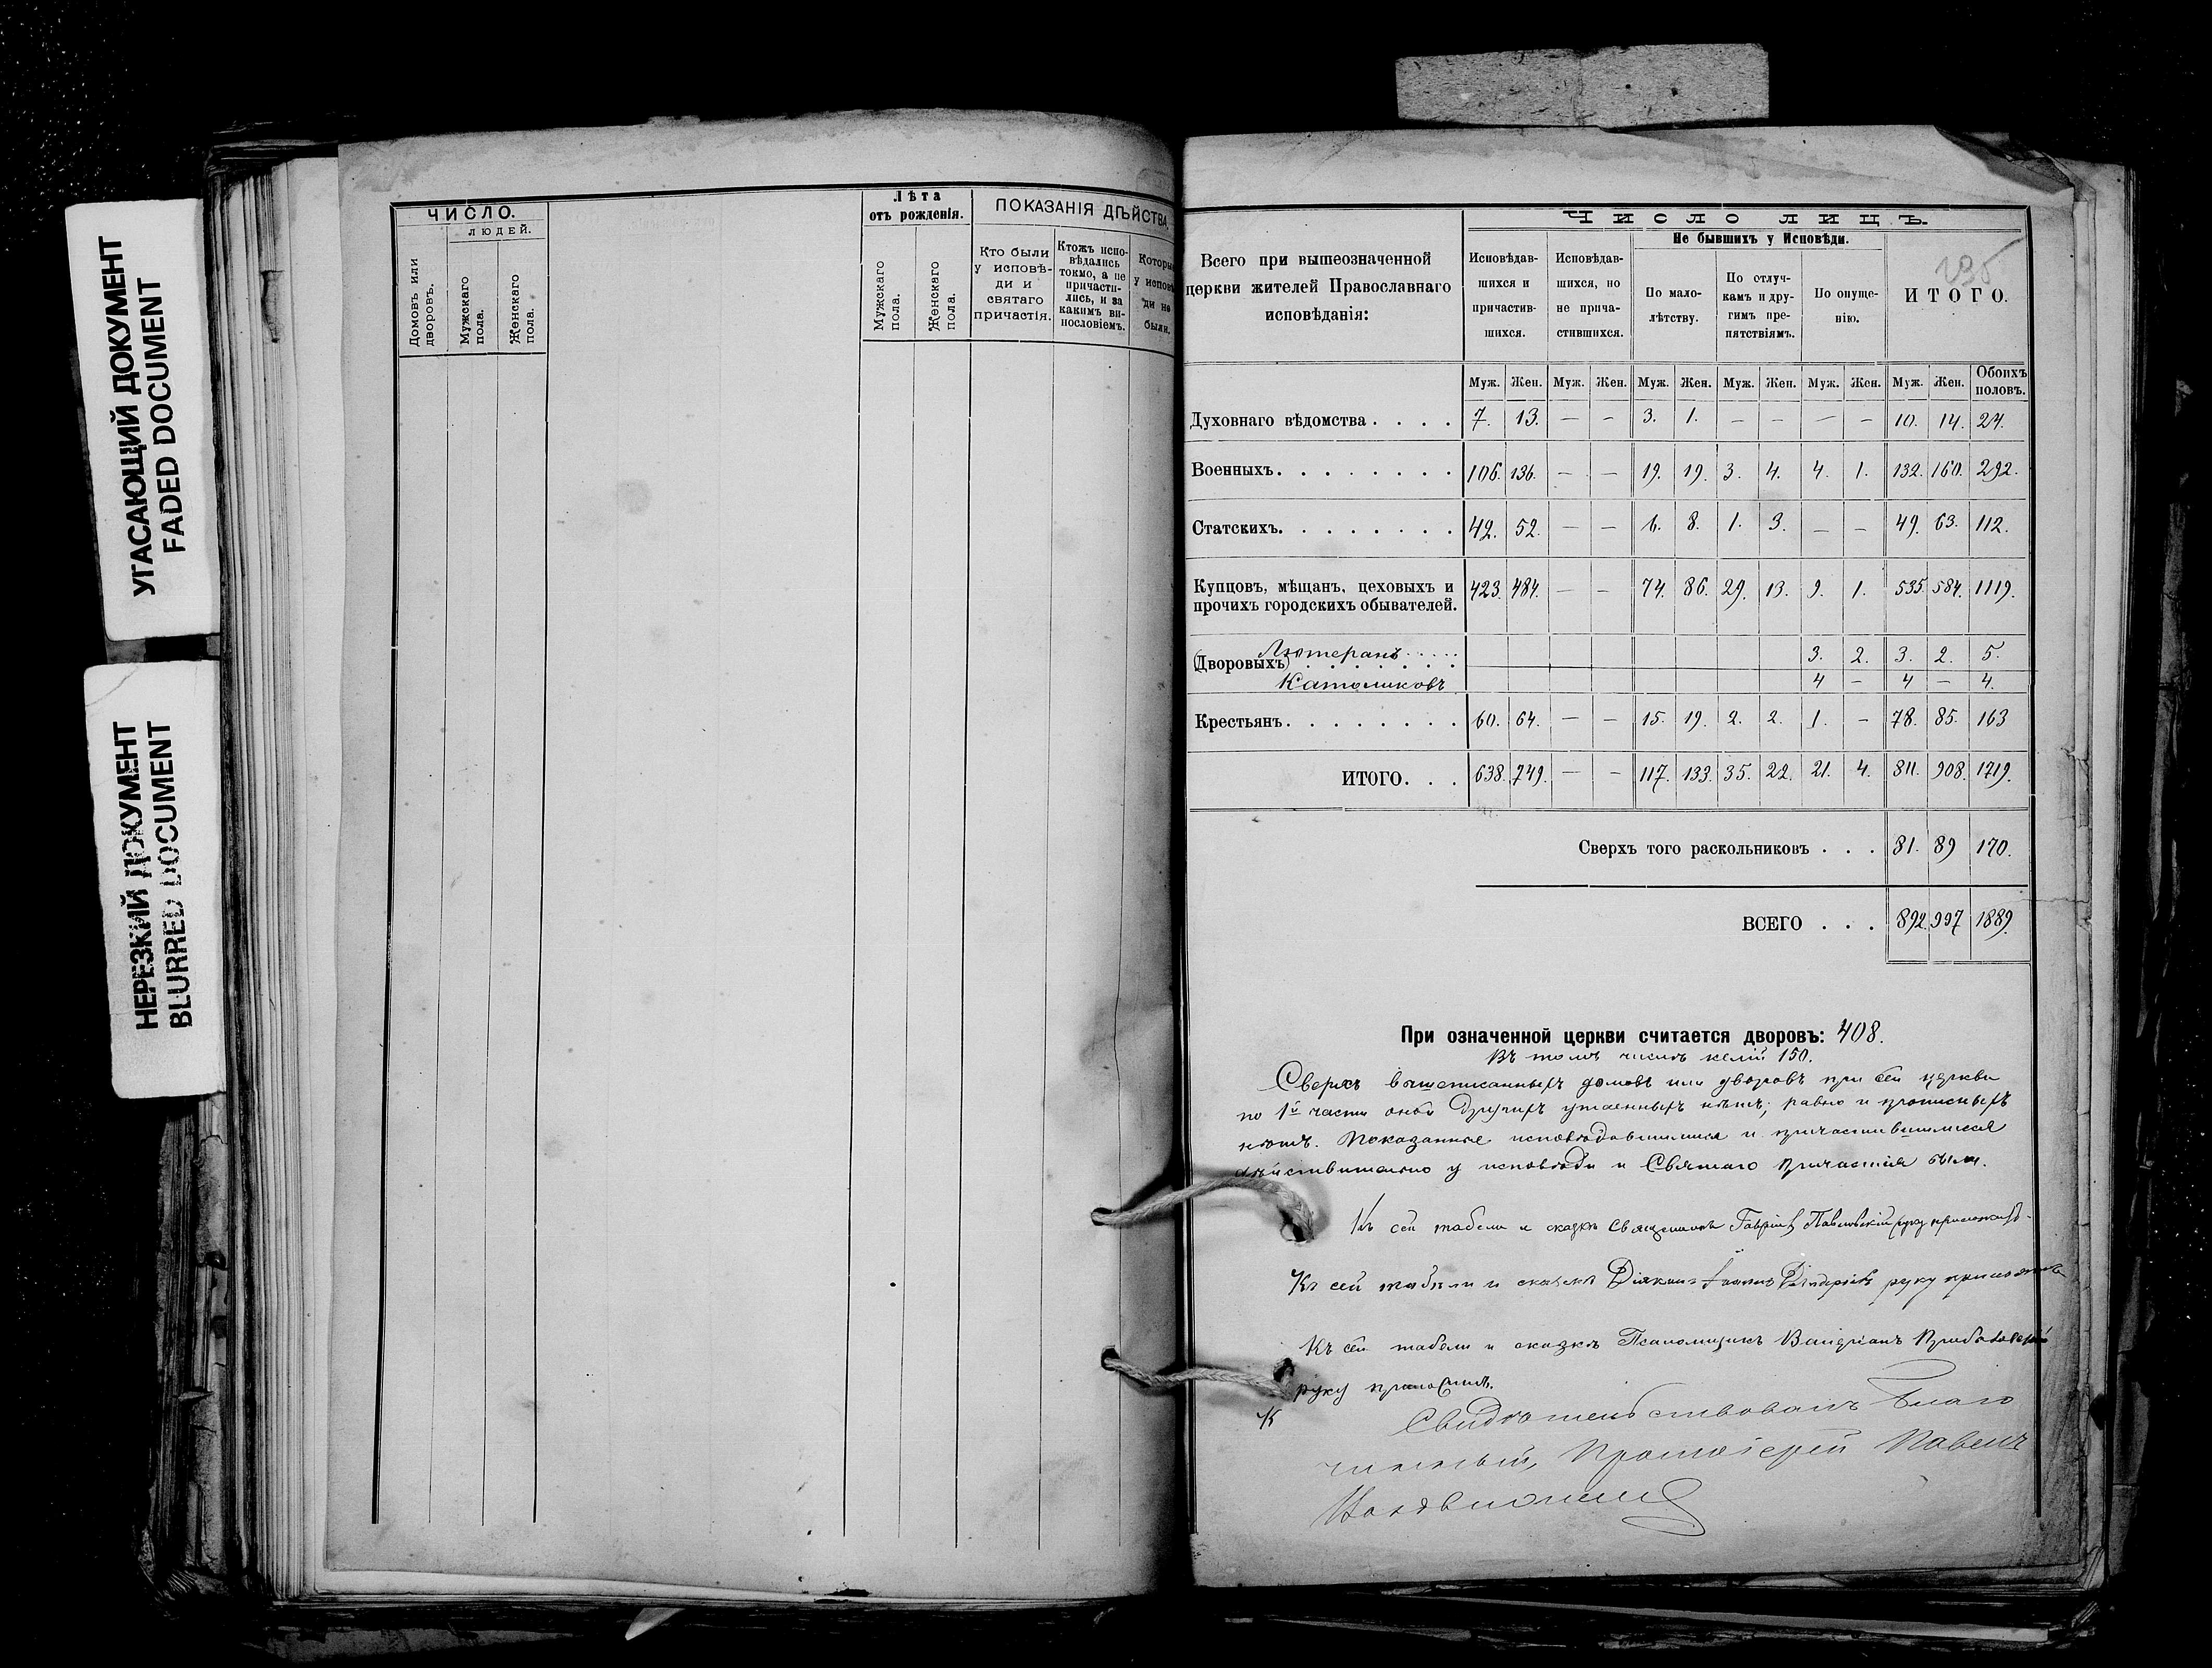 УГАСАЮЩИЙ ДОКУМЕНТ
FADED DOCUMENT
НЕРЕЗКИЙ ДОКУМЕНТ
BLURRED DOCUMENT
ЧИСЛО.
ЛЮДЕЙ.
Домовъ или дворовъ.
Мужскаго пола.
Женскаго пола.
Лѣта
отъ рожденія.
Мужскаго пола.
Женскаго пола.
ПОКАЗАНІЯ ДѢЙСТВА,
Кто были
у исповѣ-
ди и
святаго
причастія.
Ктожъ испо-
вѣдались
токмо, а не
причасти-
лись, и за
какимъ ви-
нословіемъ.
Которые
у исповѣ-
ди не
были.
Всего при вышеозначенной
церкви жителей Православнаго
исповѣданія:
ЧИСЛО ЛИЦЪ.
Исповѣдав-
шихся и
причастив-
шихся.
Исповѣдав-
шихся, но
не прича-
стившихся.
Не бывшихъ у Исповѣди.
По мало-
лѣтству.
По отлуч-
камъ и дру-
гимъ пре-
пятствіямъ.
По опуще-
нію.
235
ИТОГО.
Муж. Жен. Муж. Жен. Муж. Жен. Муж. Жен. Муж. Жен. Муж. Жен. Обоихъ половъ.
Духовнаго вѣдомства . . . . 7. 13. — — 3. 1. — — — — 10. 14. 24.
Военныхъ. . . . . . . . 106. 136. — — 19. 19. 3. 4. 4. 1. 132. 160. 292.
Статскихъ. . . . . . . . 42. 52. — — 6. 8. 1. 3. — — 49. 63. 112.
Купцовъ, мѣщанъ, цеховыхъ и
прочихъ городскихъ обывателей. 423. 484. — — 74. 86. 29. 13. 9. 1. 535. 584. 1119.
Лютеранъ . . . . . 3. 2. 3. 2. 5.
(Дворовыхъ) . . . . . . .
Католиковъ 4 — 4 — 4.
Крестьянъ. . . . . . . . 60. 64. — — 15. 19. 2. 2. 1. — 78. 85. 163
ИТОГО. . . 638. 749. — — 117. 133. 35. 22. 21. 4. 811. 908. 1719.
Сверхъ того раскольниковъ . . . 81. 89 170.
ВСЕГО . . . 892. 997 1889.
При означенной церкви считается дворовъ: 408.
Въ томъ числѣ келій 150.
Сверхъ вышеписанныхъ домовъ или дворовъ при сей церкви
по 1й части оной другихъ утаенныхъ нѣтъ, равно и прописныхъ
нѣтъ. Показанные исповѣдавшимися и причастившимися
дѣйствительно у исповѣди и Святаго причастія были.
Къ сей табели и сказкѣ Священникъ Гавріилъ Павловскій руку приложилъ.
Къ сей табели и сказкѣ Діаконъ Іоаннъ руку приложилъ
Къ сей табели и сказкѣ Псаломщикъ
руку приложилъ.
К
Свидѣтельствовалъ Благо
чинный, Протоіерей Павелъ